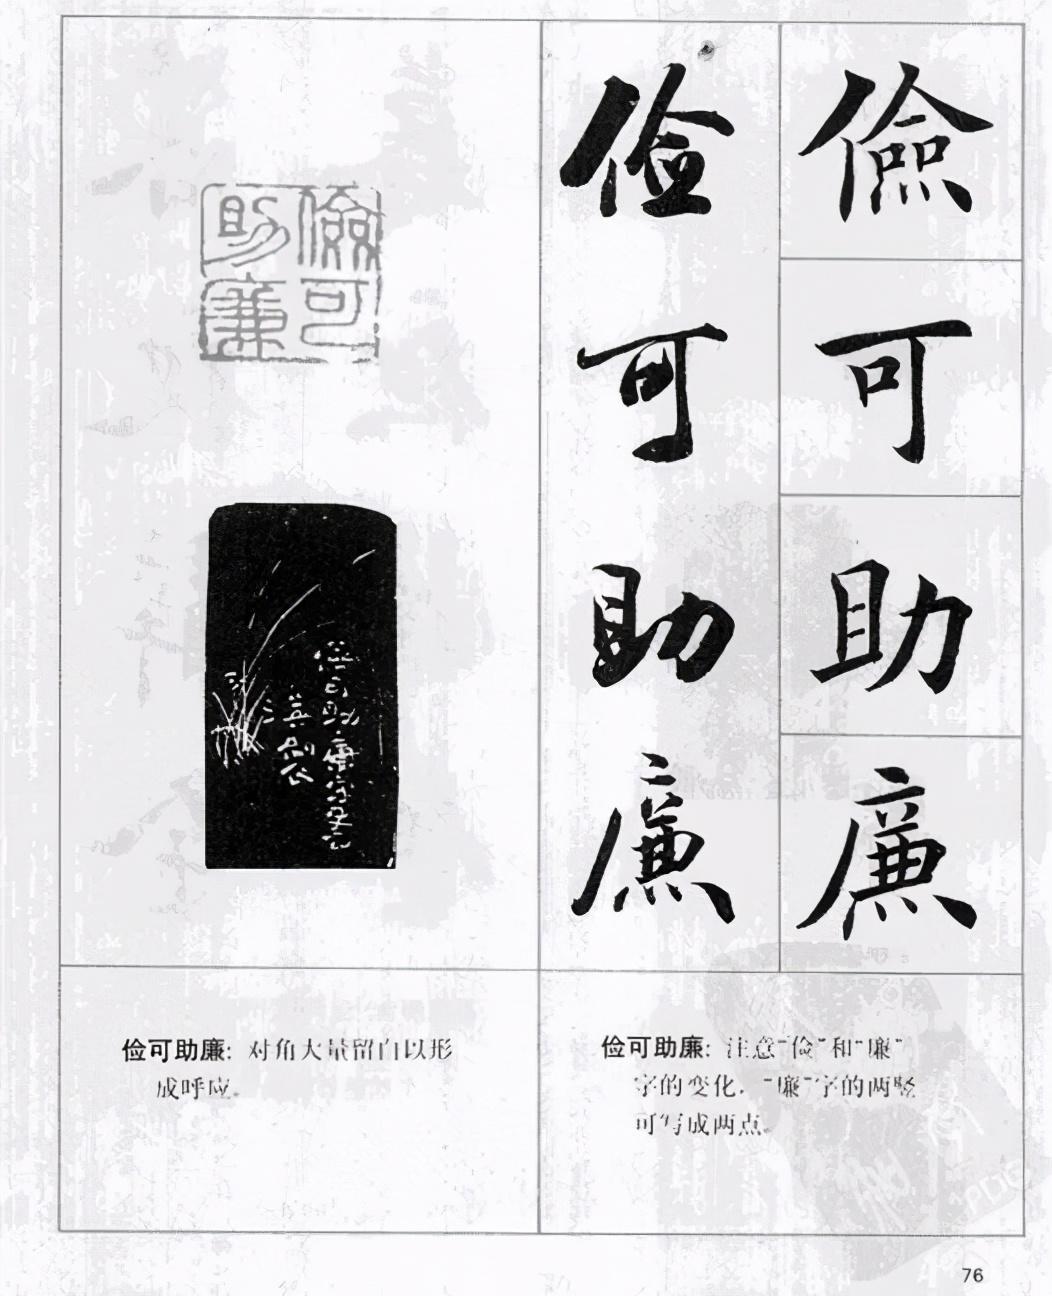 儉
可
助
廉
俭
可
助
廉
儉可
助廉
俭可助廉：对角大量留白以形
成呼应。
俭可助廉：注意“俭”和“廉”
字的变化，“廉”字的两竖
可写成两点。
76